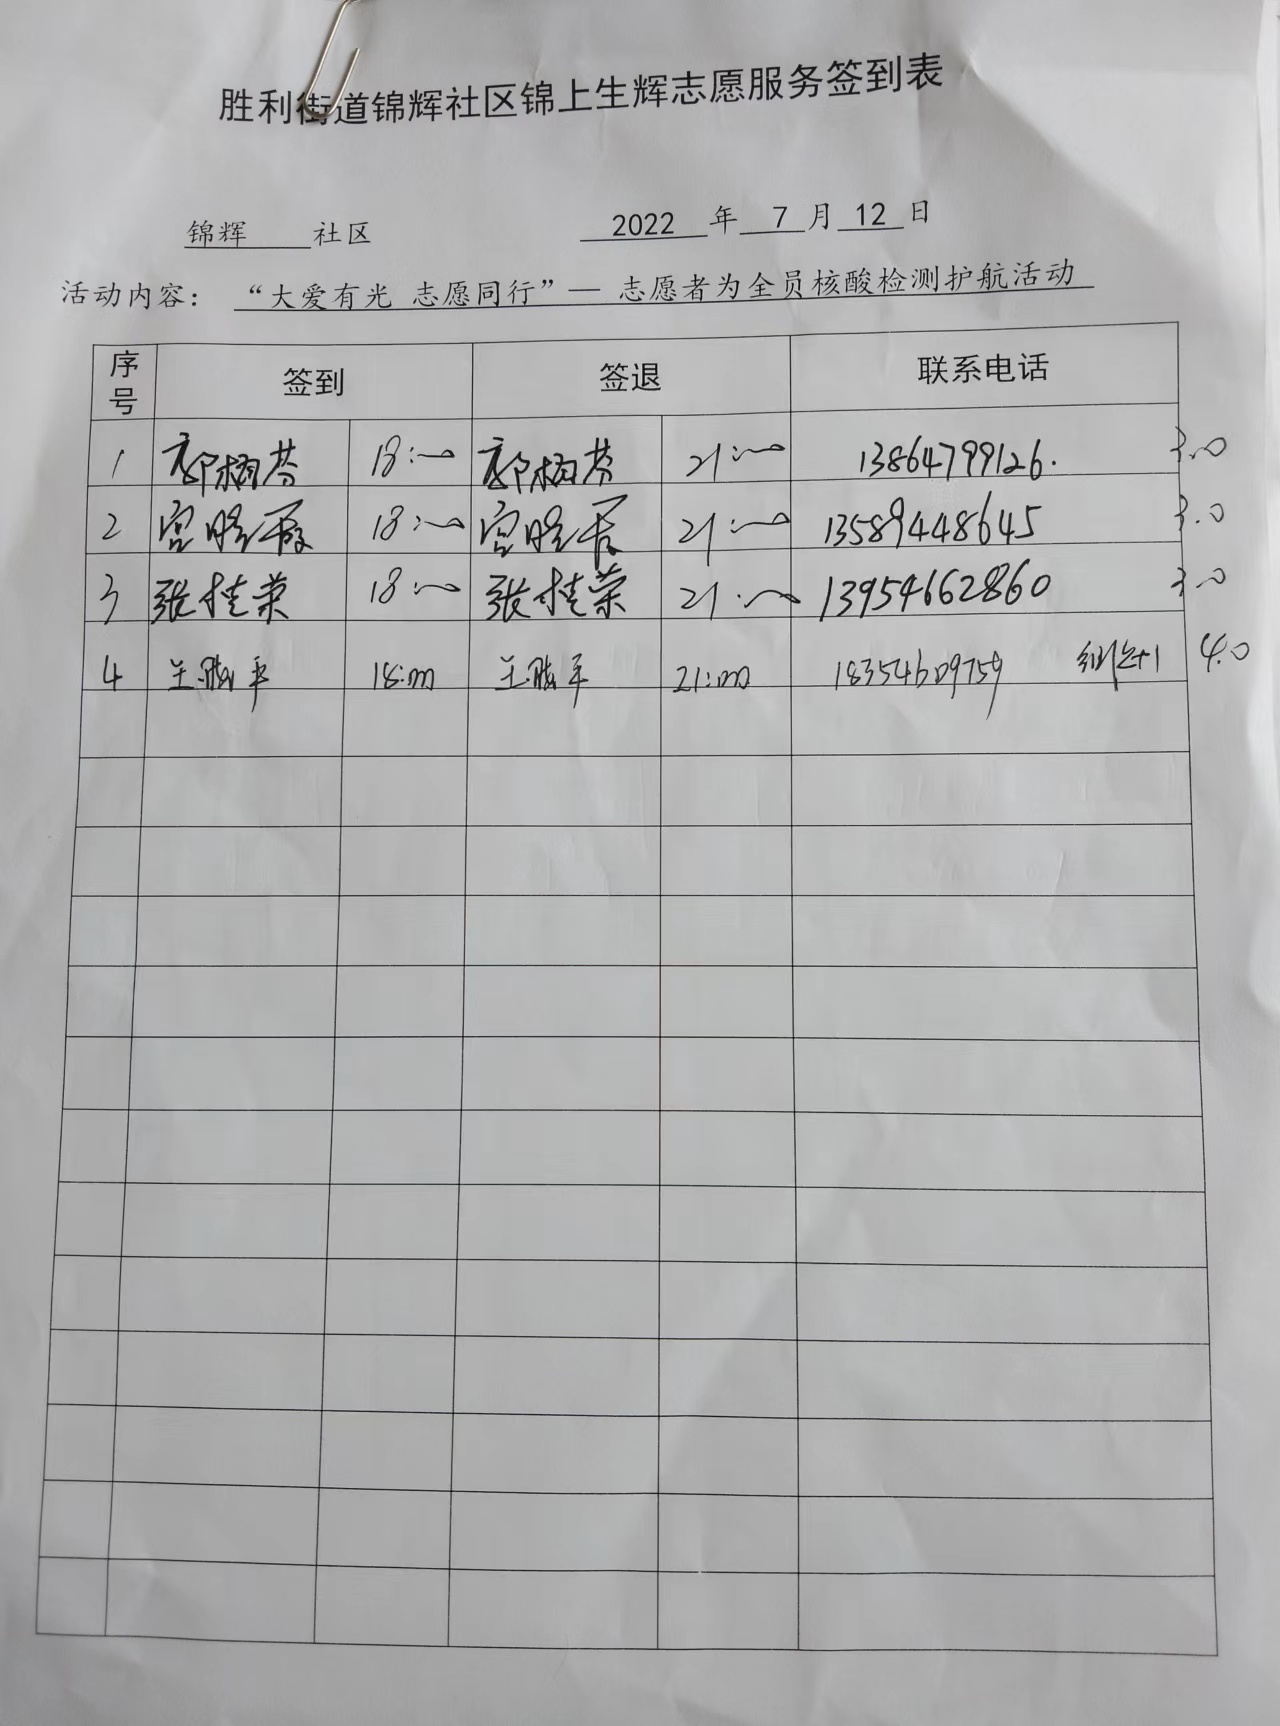 胜利街道锦辉社区锦上生辉志愿服务签到表
锦辉 社区 2022 年 7 月 12 日
活动内容： “大爱有光 志愿同行”— 志愿者为全员核酸检测护航活动
序号 签到 签退 联系电话
1 18:00 21:00 13864799126. 3.0
2 宫晓霞 18:00 宫晓霞 21:00 13589448645 3.0
3 张桂荣 18:00 张桂荣 21:00 13954662860 3.0
4 18:00 21:00 18354609759 组织+1 4.0